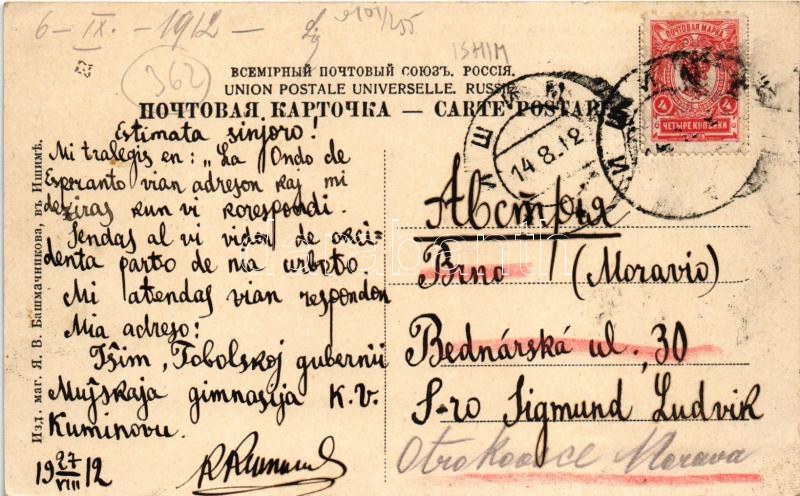 6 - IX. - 1912 -
362
ISHIM
ВСЕМІРНЫЙ ПОЧТОВЫЙ СОЮЗЪ. РОССІЯ.
UNION POSTALE UNIVERSELLE. RUSSIE.
ПОЧТОВАЯ КАРТОЧКА — CARTE POSTALE
ПОЧТОВАЯ МАРКА
4 4
ЧЕТЫРЕ КОПѢЙКИ
ИШИМ
14.8.12
Estimata sinjoro!
Mi tralegis en: „La Ondo de
Esperanto vian adreson kaj mi
deziras kun vi korespondi.
Sendas al vi vidon de okci-
denta parto de nia urbeto.
Mi atendas vian respondon
Mia adreso:
Iŝim, Tobolskoj gubernii
Muĵskaja gimnasija K.V.
Kuminovu.
19 27/VIII 12
Австрія
Brno (Moravio)
Bednárská ul. 30
S-ro Sigmund Ludvik
Otrokovice Morava
Изд. маг. Я. В. Башмачникова, въ Ишимѣ.
darabanth